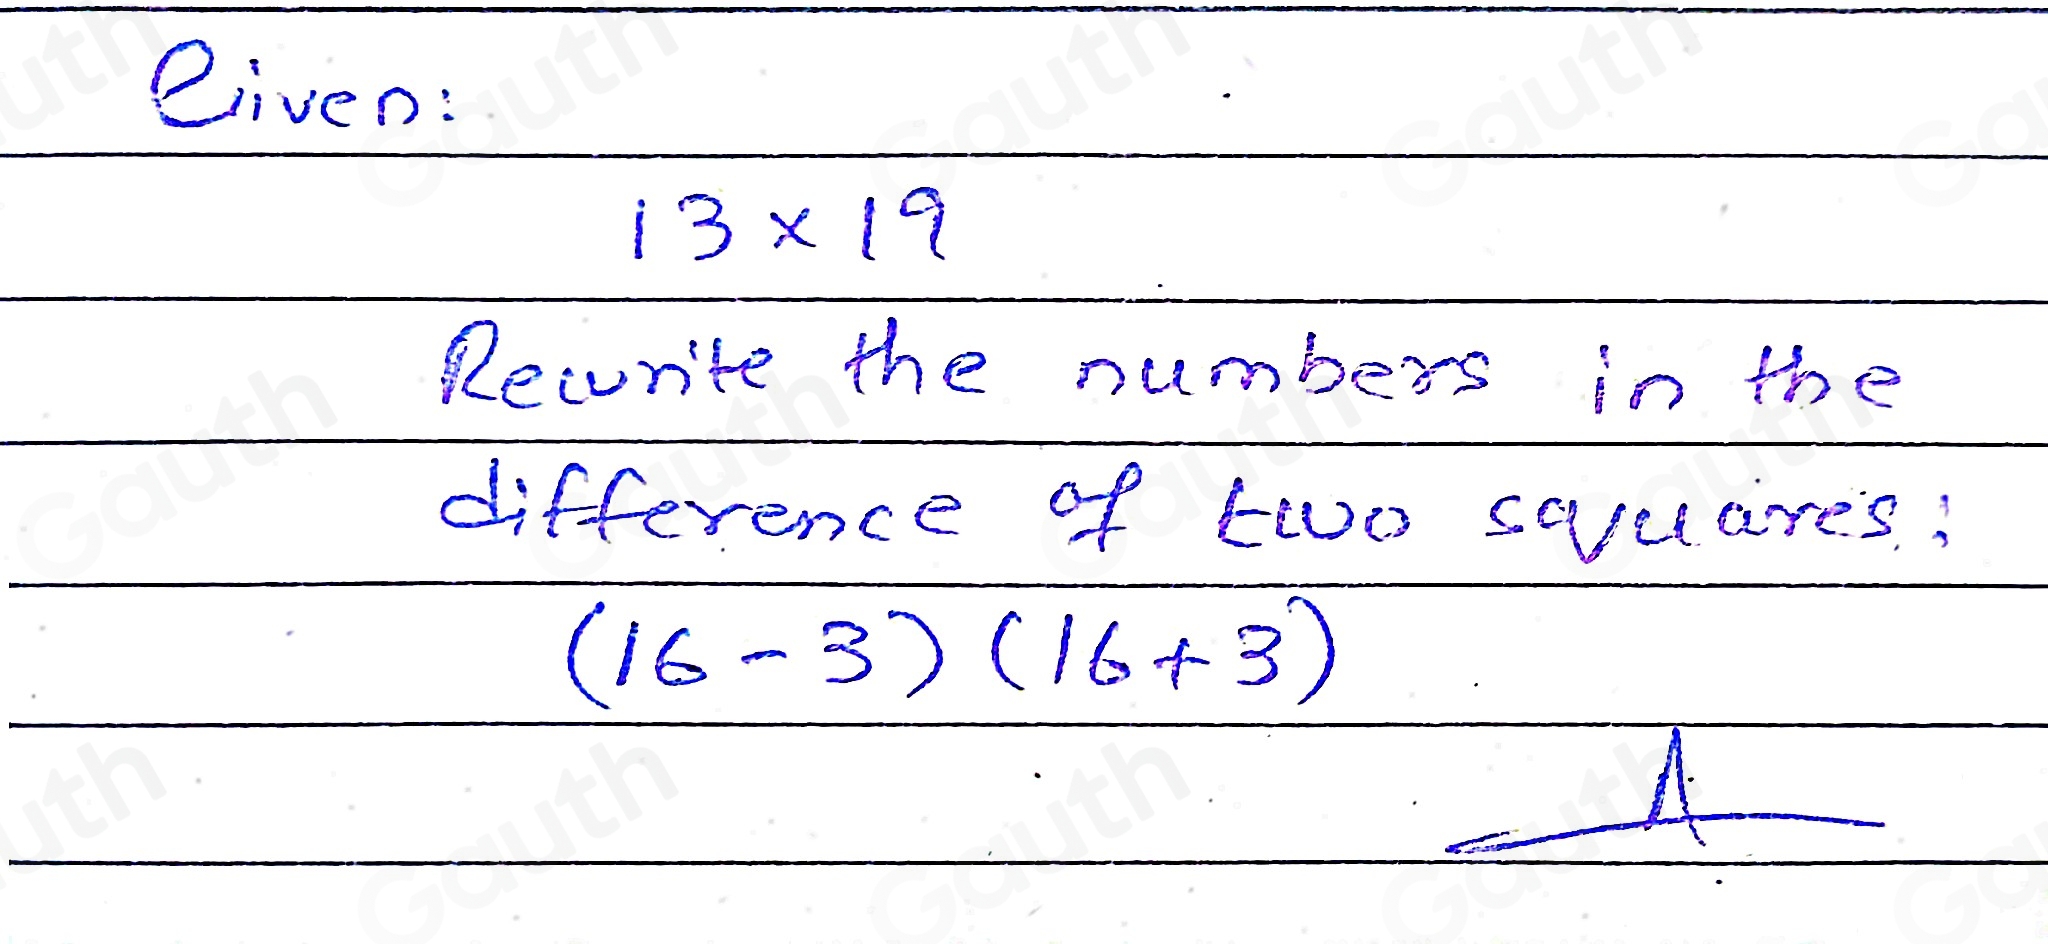 Given:
13 × 19
Rewrite the numbers in the
difference of two squares:
(16 - 3) (16 + 3)